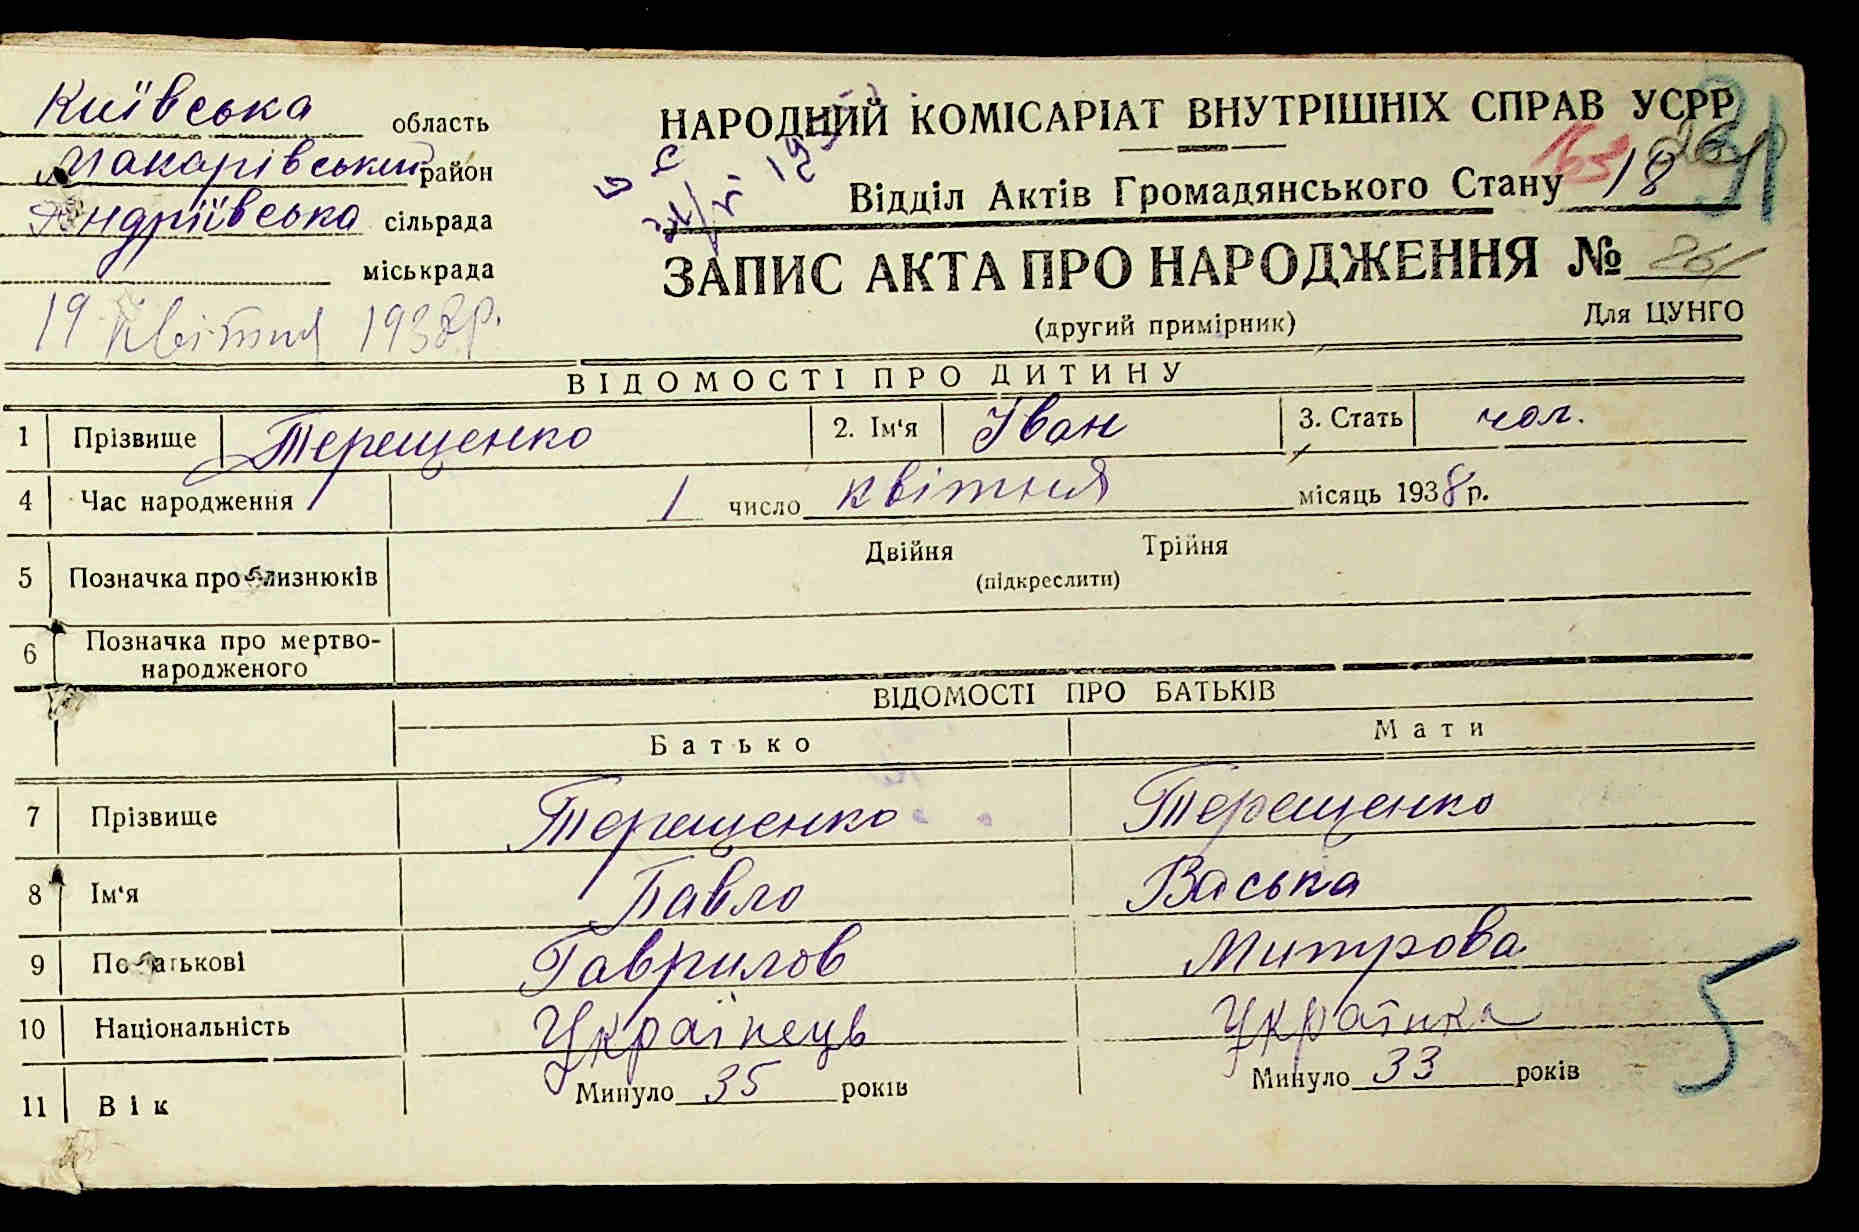 Київська область
Макарівський район
Андріївська сільрада
міськрада
19 квітня 1938р.
НАРОДНИЙ КОМІСАРІАТ ВНУТРІШНІХ СПРАВ УСРР
Відділ Актів Громадянського Стану 18
ЗАПИС АКТА ПРО НАРОДЖЕННЯ №
(другий примірник) Для ЦУНГО
ВІДОМОСТІ ПРО ДИТИНУ
1 Прізвище Терещенко 2. Ім'я Іван 3. Стать чол.
4 Час народження 1 число квітня місяць 1938р.
5 Позначка про близнюків Двійня Трійня
(підкреслити)
6 Позначка про мертво-
народженого
ВІДОМОСТІ ПРО БАТЬКІВ
Батько Мати
7 Прізвище Терещенко Терещенко
8 Ім'я Павло Васька
9 По батькові Гаврилов Митрова
10 Національність Українець Українка
11 Вік Минуло 35 років Минуло 33 років
5